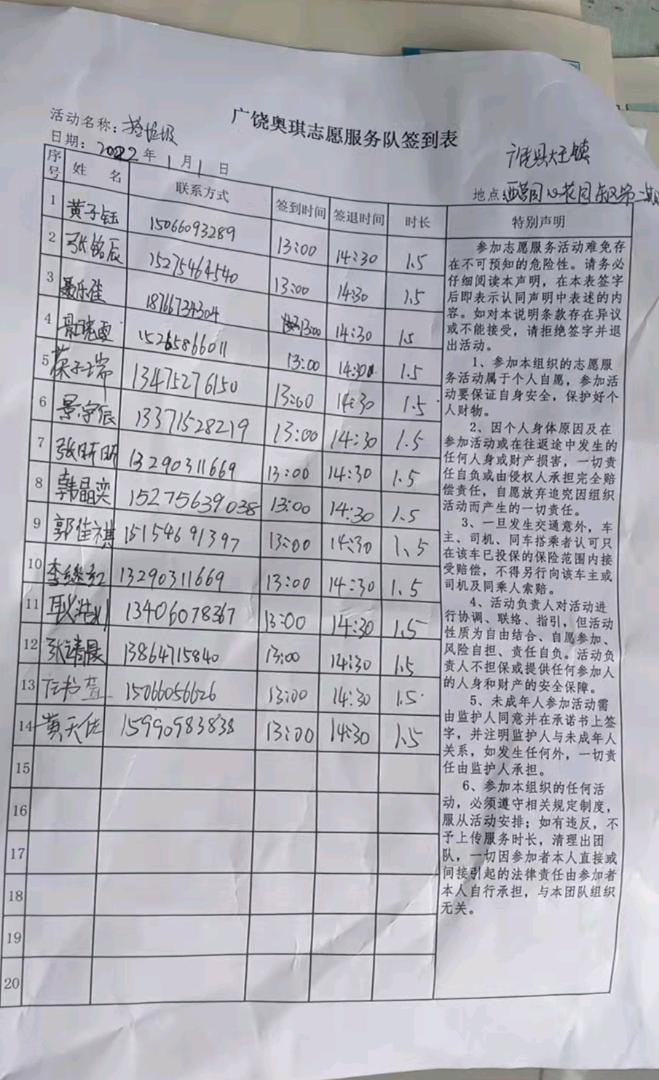 广饶奥琪志愿服务队签到表
活动名称：捡垃圾
日期：2022年1月1日
广饶县大王镇
地点
序号 姓名 联系方式 签到时间 签退时间 时长 特别声明
1 黄子钰 15066093289 13:00 14:30 1.5
2 张铭辰 15275464540 13:00 14:30 1.5
3 聂乐佳 18766734304 13:00 14:30 1.5
4 15265866011 13:00 14:30 1.5
5 13475276150 13:00 14:30 1.5
6 景宇辰 13371528219 13:00 14:30 1.5
7 张昕玥 13290311669 13:00 14:30 1.5
8 韩晶奕 15275639038 13:00 14:30 1.5
9 郭佳祺 15154691397 13:00 14:30 1.5
10 李继红 13290311669 13:00 14:30 1.5
11 13406078367 13:00 14:30 1.5
12 张靖晨 13864715840 13:00 14:30 1.5
13 15066056626 13:00 14:30 1.5
14 黄天佑 15990983838 13:00 14:30 1.5
15
16
17
18
19
20
参加志愿服务活动难免存
在不可预知的危险性。请务必
仔细阅读本声明，在本表签字
后即表示认同声明中表述的内
容。如对本说明条款存在异议
或不能接受，请拒绝签字并退
出活动。
1、参加本组织的志愿服
务活动属于个人自愿，参加活
动要保证自身安全，保护好个
人财物。
2、因个人身体原因及在
参加活动或在往返途中发生的
任何人身或财产损害，一切责
任自负或由侵权人承担完全赔
偿责任，自愿放弃追究因组织
活动而产生的一切责任。
3、一旦发生交通意外，车
主、司机、同车搭乘者认可只
在该车已投保的保险范围内接
受赔偿，不得另行向该车主或
司机及同乘人索赔。
4、活动负责人对活动进
行协调、联络、指引，但活动
性质为自由结合、自愿参加、
风险自担、责任自负。活动负
责人不担保或提供任何参加人
的人身和财产的安全保障。
5、未成年人参加活动需
由监护人同意并在承诺书上签
字，并注明监护人与未成年人
关系，如发生任何外，一切责
任由监护人承担。
6、参加本组织的任何活
动，必须遵守相关规定制度，
服从活动安排；如有违反，不
予上传服务时长，清理出团
队，一切因参加者本人直接或
间接引起的法律责任由参加者
本人自行承担，与本团队组织
无关。